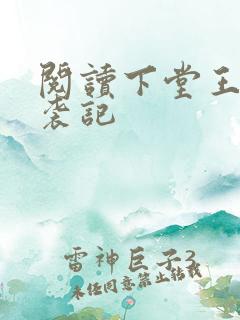 閱讀下堂王
袭記
雷神巨子3
未经同意禁止转载